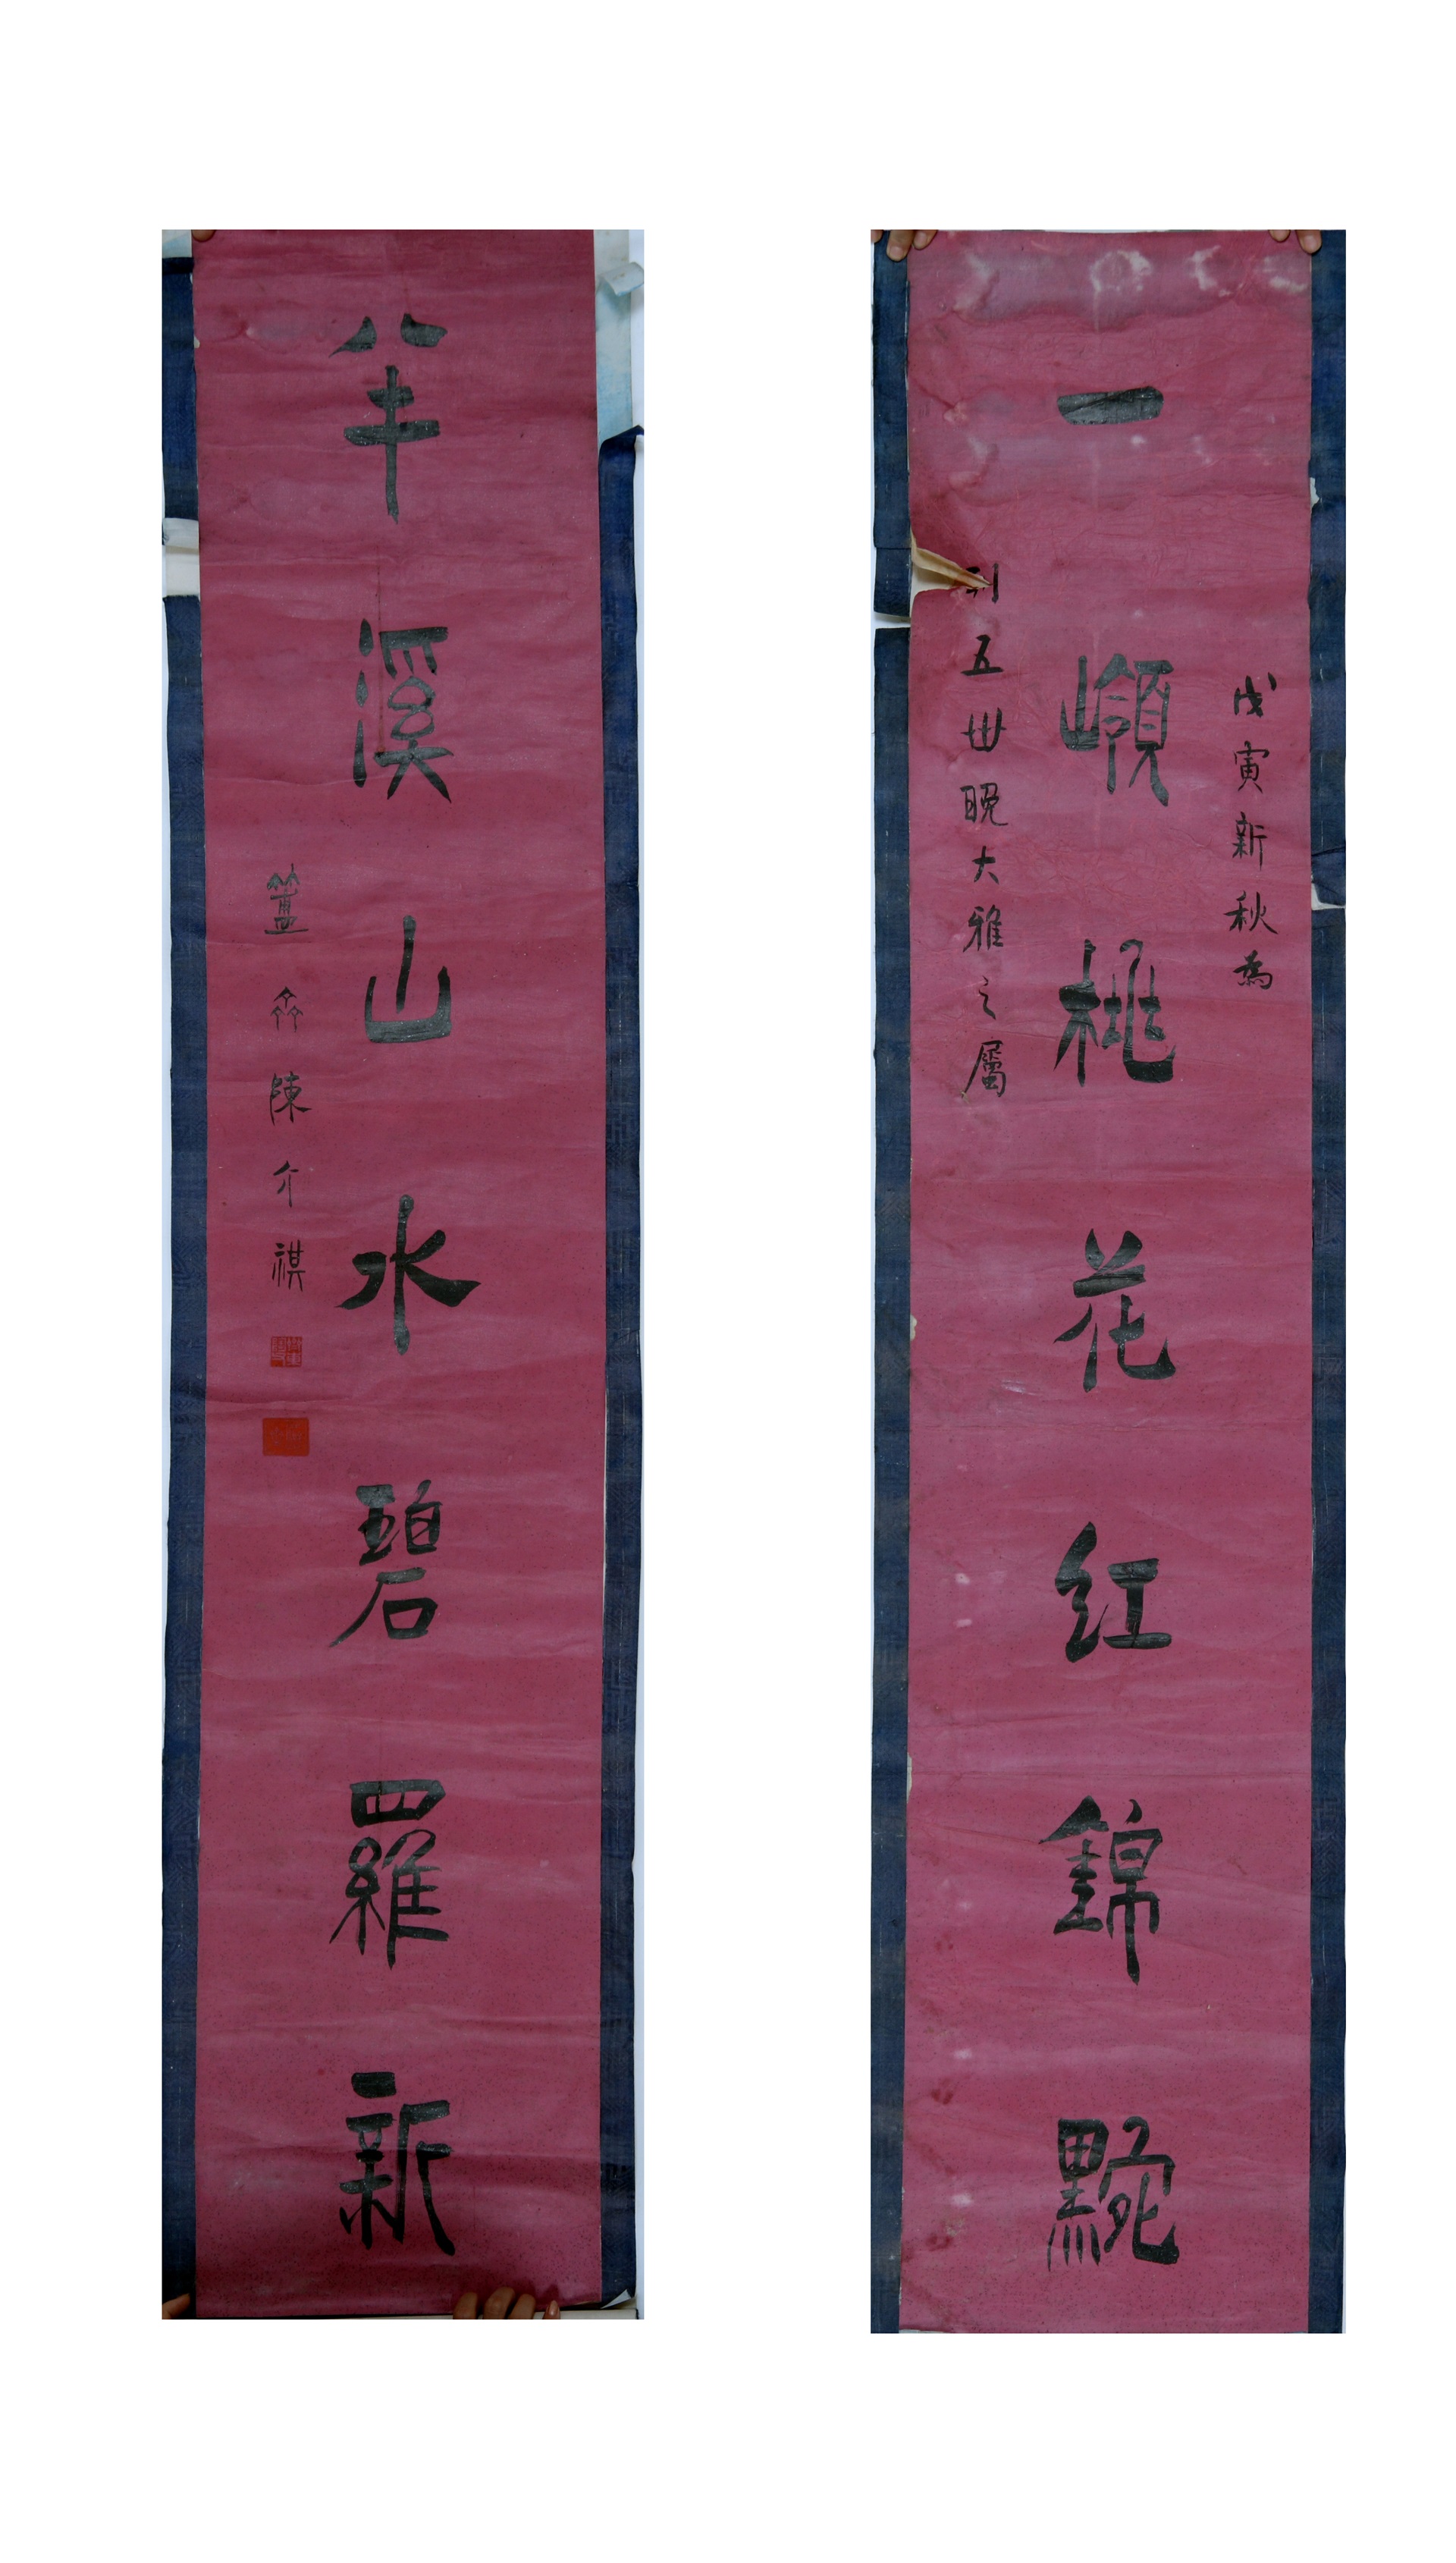 戊寅新秋為
一嶺桃花红錦黦
五世晚大雅之屬
半溪山水碧羅新
簠亝陳介祺